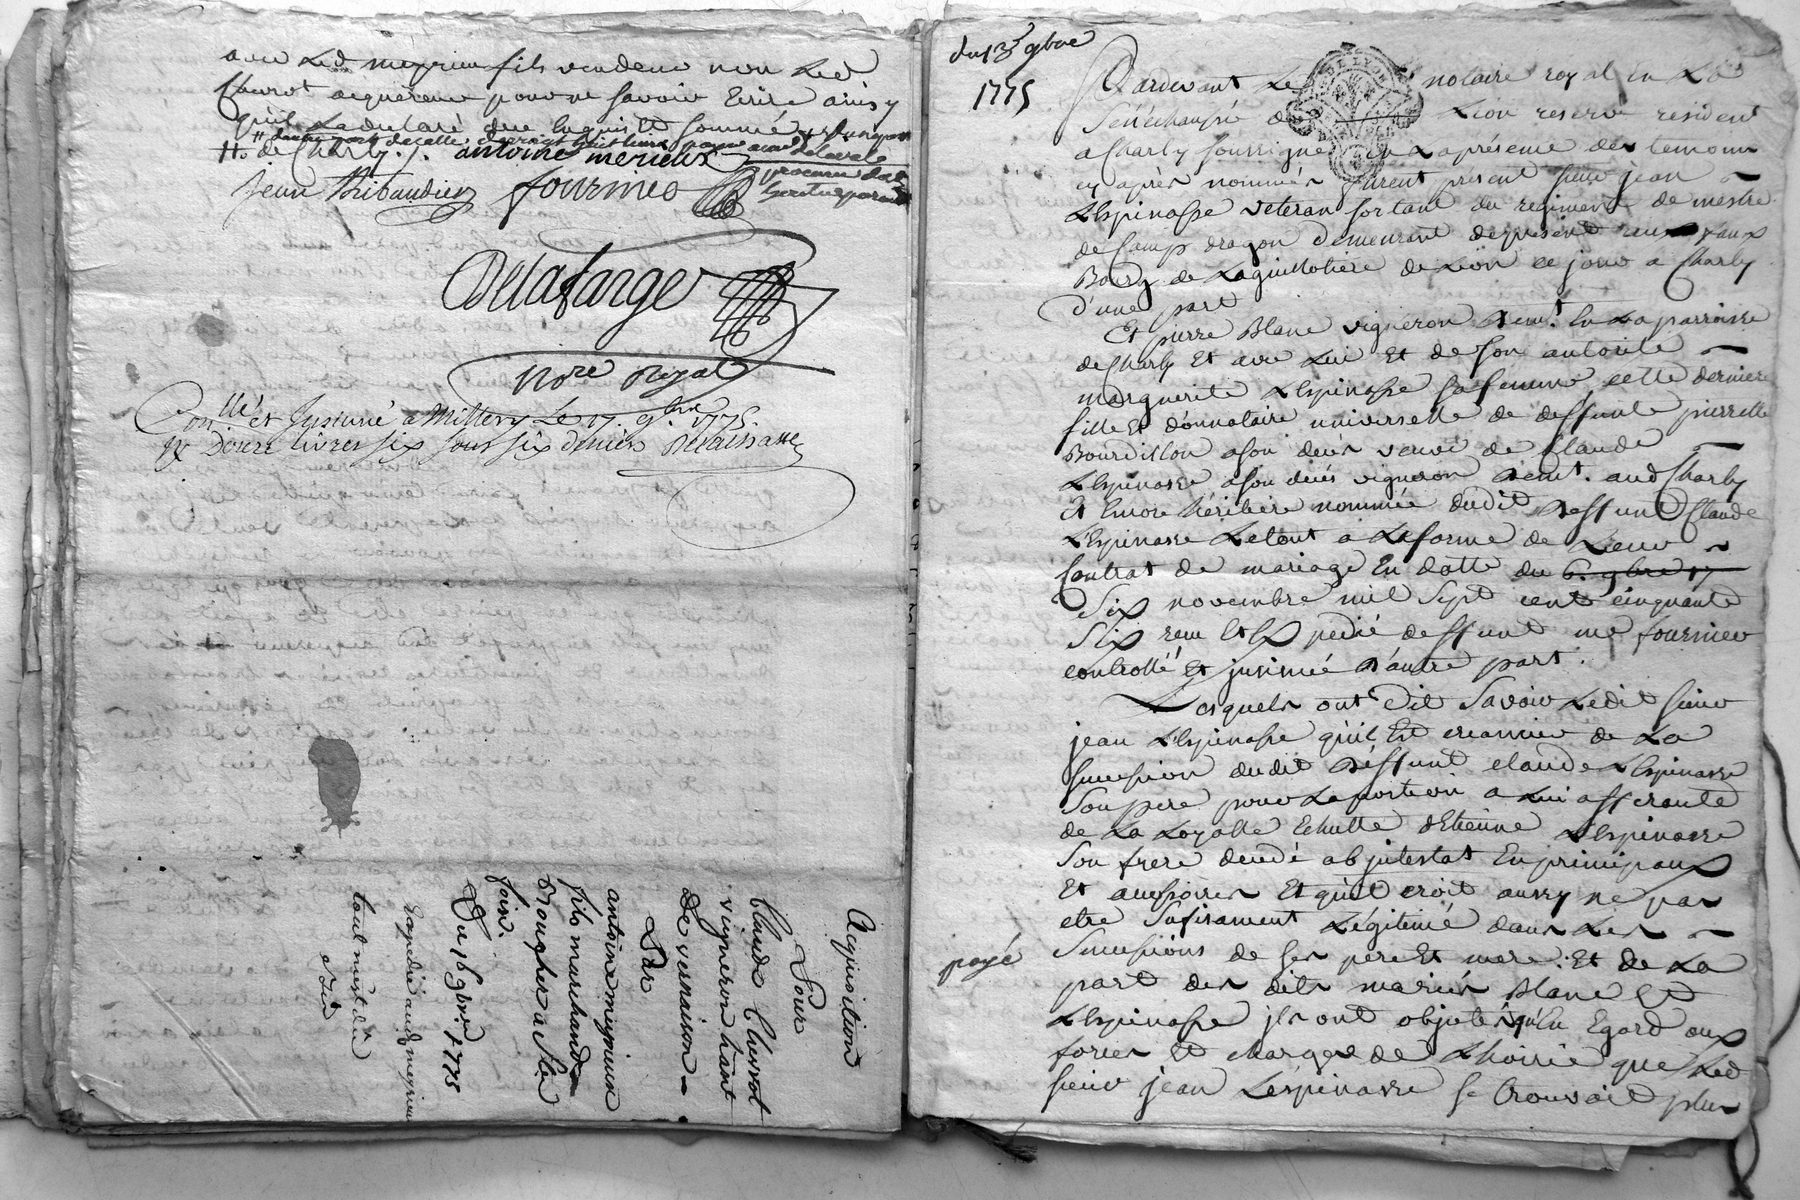 avec led meyrieu fils vendeur non led
Chervot acquéreur pour ne savoir Ecrire ainsy
qu'il a declaré de ce enquis et sommé
de Charly ./. antoine merieux
jean Thibaudier fournier
Delafarge
No.re Royal
Con.llé et Insinué a Millery Le 17. 9.bre 1775.
R. Douze livres six sous six deniers Delaissasse
Acquisition
Pour
Claude Chervot
vigneron hânt
de vernaison
Par
antoine meyrieux
fils marchand
Droupher a Ste
foix.
Du 16 9bre 1775
Expédié aud meyrieu
tout mest dû
du 13e 9bre
1775
Pardevant Le notaire royal En La
Sénéchaussé de Lion reservé resident
a Charly soussigné Et En présence des temoins
cy après nommés furent présent sieur jean
LEspinasse veteran sortant du regiment de mestre
de Camp dragon demeurant depresent aux
Bourg de Laguillotière de Lion ce jour a Charly
d'une part
Et pierre Blanc vigneron demt. En La parroisse
de Charly Et avec Lui Et de son autorité
marguerite LEspinasse sa femme cette derniere
fille Et donnataire universelle de deffunte pierrette
Bourdillon a son décès veuve de Claude
LEspinasse a son décès vigneron demt. aud Charly
Et Encore héritière nommée dudit deffunt Claude
LEspinasse Le tout a La forme de Leur
Contrat de mariage En datte du 6. 9bre 17
Six novembre mil sept cent cinquante
Six reçu Et Expedié deffunt me fournier
controllé Et insinué d'autre part.
Lesquels ont Dit Savoir Ledit sieur
jean LEspinasse qu'il Est creancier de La
succession dudit deffunt claude LEspinasse
Son pere pour La portion a Lui afferante
de La Loyalle Echutte d'Etienne LEspinasse
Son frere decedé abjntestat En principaux
Et accessoires Et qu'il croit aussy ne pas
etre Sufisament Légitimé dans Les
payé
Successions de ses père Et mere. Et de La
part des dits mariés Blanc Et
LEspinasse jls ont objecté qu'En Egard aux
forces Et charges de Lhoirie que Led
sieur jean LEspinasse se trouvoit plus